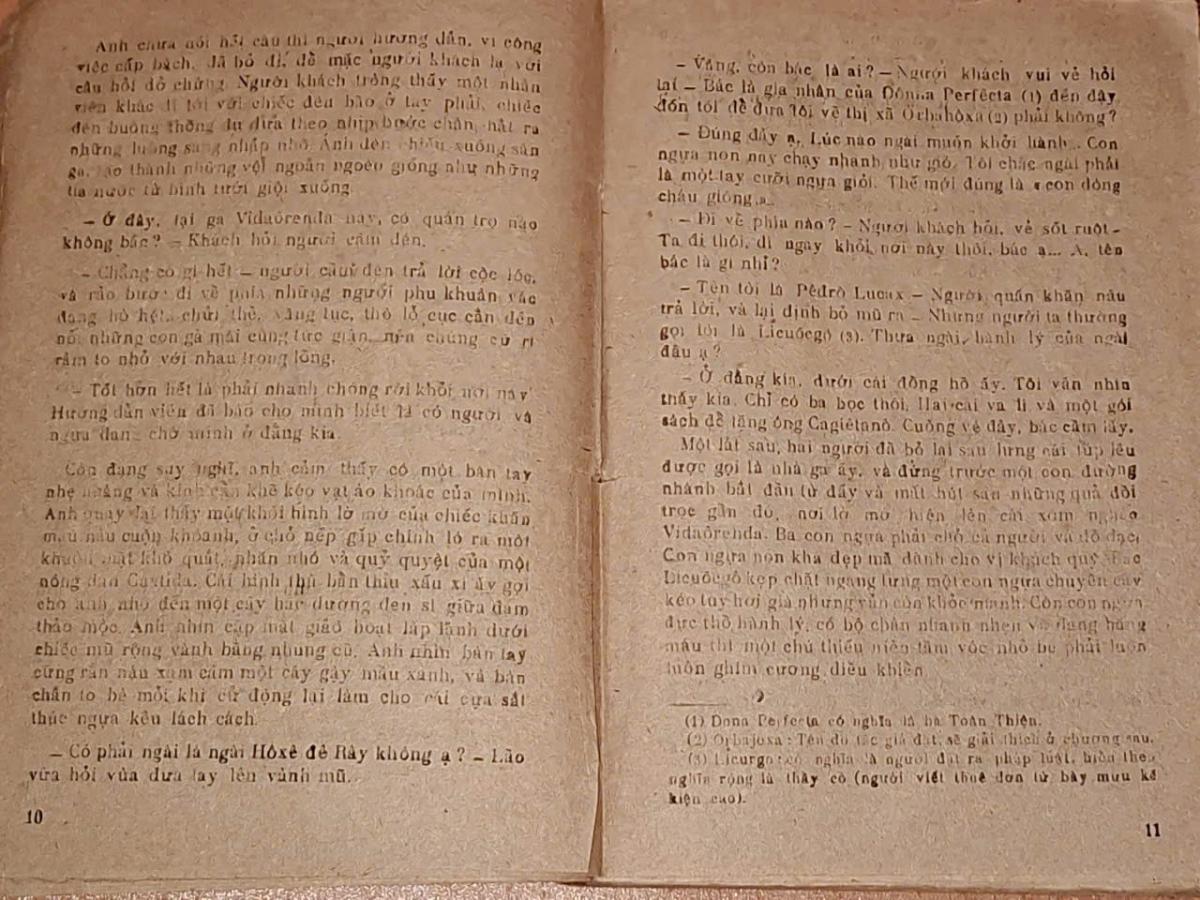 Anh chưa nói hết câu thì người hướng dẫn, vì công
việc cấp bách, đã bỏ đi, để mặc người khách lạ với
câu hỏi dở chừng. Người khách trông thấy một nhân
viên khác đi tới với chiếc đèn bão ở tay phải, chiếc
đèn buông thõng đu đưa theo nhịp bước chân, hắt ra
những luồng sáng nhấp nhô. Ánh đèn chiếu xuống sân
ga, tạo thành những vệt ngoằn ngoèo giống như những
tia nước từ bình tưới giội xuống.
– Ở đây, tại ga Vidaôrenda này, có quán trọ nào
không bác? – Khách hỏi người cầm đèn.
– Chẳng có gì hết – người cầm đèn trả lời cộc lốc,
và rảo bước đi về phía những người phu khuân vác
đang hò hét, chửi thề, văng tục, thô lỗ cục cằn đến
nỗi những con gà mái cũng tức giận, nên chúng cứ rì
rầm to nhỏ với nhau trong lồng.
– Tốt hơn hết là phải nhanh chóng rời khỏi nơi này
Hướng dẫn viên đã báo cho mình biết là có người và
ngựa đang chờ mình ở đằng kia.
Còn đang suy nghĩ, anh cảm thấy có một bàn tay
nhẹ nhàng và kính cẩn khẽ kéo vạt áo khoác của mình.
Anh quay lại thấy một khối hình lờ mờ của chiếc khăn
màu nâu cuộn khoanh, ở chỗ nếp gấp chính ló ra một
khuôn mặt khô quắt, nhăn nhó và quỷ quyệt của một
nông dân Caxtida. Cái hình thù bẩn thỉu xấu xí ấy gợi
cho anh nhớ đến một cây hắc dương đen sì giữa đám
thảo mộc. Anh nhìn cặp mắt giảo hoạt lấp lánh dưới
chiếc mũ rộng vành bằng nhung cũ. Anh nhìn bàn tay
cứng rắn nâu xạm cầm một cây gậy màu xanh, và bàn
chân to bè mỗi khi cử động lại làm cho cái cựa sắt
thúc ngựa kêu lách cách.
– Có phải ngài là ngài Hôxê đê Rây không ạ? – Lão
vừa hỏi vừa đưa tay lên vành mũ.
10
– Vâng, còn bác, là ai? – Người khách vui vẻ hỏi
lại – Bác là gia nhân của Đônna Perfecta (1) đến đây
đón tôi để đưa tôi về thị xã Orbahôxa (2) phải không?
– Đúng đấy ạ. Lúc nào ngài muốn khởi hành... Con
ngựa non này chạy nhanh như gió. Tôi chắc ngài phải
là một tay cưỡi ngựa giỏi. Thế mới đúng là « con dòng
cháu giống »...
– Đi về phía nào? – Người khách hỏi, vẻ sốt ruột –
Ta đi thôi, đi ngay khỏi nơi này thôi, bác ạ... À, tên
bác là gì nhỉ?
– Tên tôi là Pêđrô Lucax – Người quấn khăn nâu
trả lời, và lại định bỏ mũ ra – Nhưng người ta thường
gọi tôi là Licuôcgô (3). Thưa ngài, hành lý của ngài
đâu ạ?
– Ở đằng kia, dưới cái đồng hồ ấy. Tôi vẫn nhìn
thấy kia. Chỉ có ba bọc thôi. Hai cái va li và một gói
sách để tặng ông Cagiêtanô. Cuống vé đây, bác cầm lấy.
Một lát sau, hai người đã bỏ lại sau lưng cái túp lều
được gọi là nhà ga ấy, và đứng trước một con đường
nhánh bắt đầu từ đấy và mất hút sau những quả đồi
trọc gần đó, nơi lờ mờ hiện lên cái xóm nghèo
Vidaôrenda. Ba con ngựa phải chở cả người và đồ đạc.
Con ngựa non khá đẹp mã dành cho vị khách quý. Bác
Licuôcgô kẹp chặt ngang lưng một con ngựa chuyên cày
kéo tuy hơi già nhưng vẫn còn khỏe mạnh. Còn con ngựa
đực thồ hành lý, có bộ chân nhanh nhẹn và đang hăng
máu thì một chú thiếu niên tầm vóc nhỏ bé phải luôn
luôn ghìm cương, điều khiển.
(1) Dona Perfecta có nghĩa là bà Toàn Thiện.
(2) Orbajoxa: Tên do tác giả đặt, sẽ giải thích ở chương sau.
(3) Licurgo: có nghĩa là người đặt ra pháp luật, hiểu theo
nghĩa rộng là thầy cò (người viết thuê đơn từ bày mưu kế
kiện cáo).
11